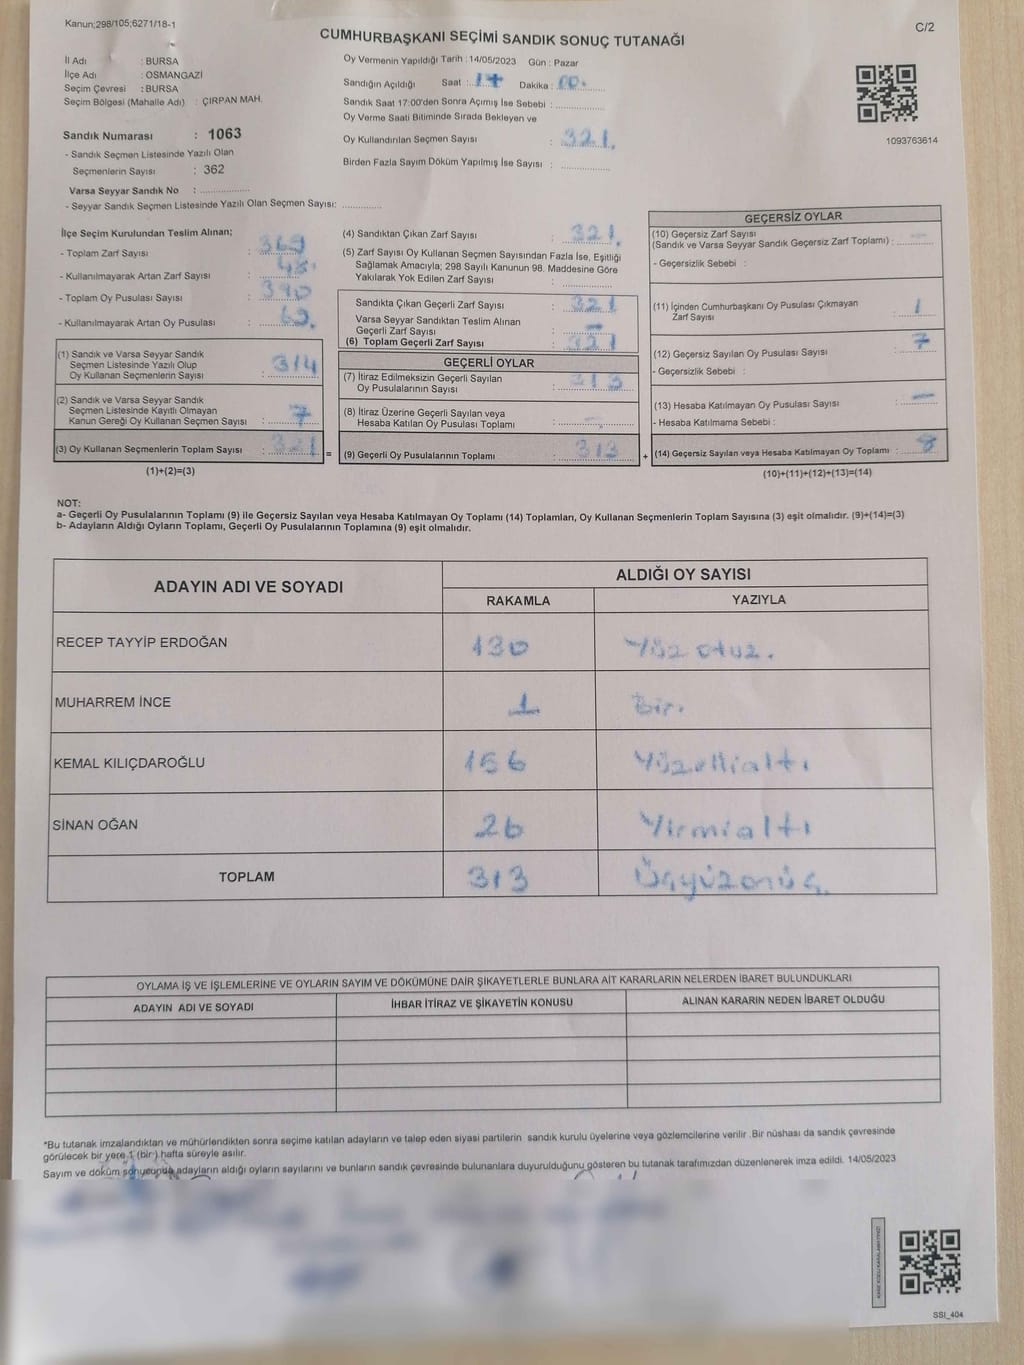 Kanun;298/105;6271/18-1
C/2
CUMHURBAŞKANI SEÇİMİ SANDIK SONUÇ TUTANAĞI
İl Adı : BURSA
İlçe Adı : OSMANGAZİ
Seçim Çevresi : BURSA
Seçim Bölgesi (Mahalle Adı) : ÇIRPAN MAH.
Sandık Numarası : 1063
- Sandık Seçmen Listesinde Yazılı Olan
Seçmenlerin Sayısı : 362
Varsa Seyyar Sandık No : ................
- Seyyar Sandık Seçmen Listesinde Yazılı Olan Seçmen Sayısı: .............
Oy Vermenin Yapıldığı Tarih : 14/05/2023 Gün : Pazar
Sandığın Açıldığı Saat : 17 Dakika : 00
Sandık Saat 17:00'den Sonra Açımış İse Sebebi : ................
Oy Verme Saati Bitiminde Sırada Bekleyen ve
Oy Kullandırılan Seçmen Sayısı : 321.
Birden Fazla Sayım Döküm Yapılmış İse Sayısı : ................
1093763614
İlçe Seçim Kurulundan Teslim Alınan;
- Toplam Zarf Sayısı : 369
- Kullanılmayarak Artan Zarf Sayısı : 48
- Toplam Oy Pusulası Sayısı :
- Kullanılmayarak Artan Oy Pusulası :
(1) Sandık ve Varsa Seyyar Sandık
Seçmen Listesinde Yazılı Olup
Oy Kullanan Seçmenlerin Sayısı : 314
(2) Sandık ve Varsa Seyyar Sandık
Seçmen Listesinde Kayıtlı Olmayan
Kanun Gereği Oy Kullanan Seçmen Sayısı : 7
(3) Oy Kullanan Seçmenlerin Toplam Sayısı : 321
(1)+(2)=(3)
(4) Sandıktan Çıkan Zarf Sayısı : 321.
(5) Zarf Sayısı Oy Kullanan Seçmen Sayısından Fazla İse, Eşitliği
Sağlamak Amacıyla; 298 Sayılı Kanunun 98. Maddesine Göre
Yakılarak Yok Edilen Zarf Sayısı : ................
Sandıkta Çıkan Geçerli Zarf Sayısı : 321
Varsa Seyyar Sandıktan Teslim Alınan
Geçerli Zarf Sayısı : -
(6) Toplam Geçerli Zarf Sayısı : 321
GEÇERLİ OYLAR
(7) İtiraz Edilmeksizin Geçerli Sayılan
Oy Pusulalarının Sayısı : 313
(8) İtiraz Üzerine Geçerli Sayılan veya
Hesaba Katılan Oy Pusulası Toplamı : -
= (9) Geçerli Oy Pusulalarının Toplamı : 313
GEÇERSİZ OYLAR
(10) Geçersiz Zarf Sayısı
(Sandık ve Varsa Seyyar Sandık Geçersiz Zarf Toplamı) : -
- Geçersizlik Sebebi :
(11) İçinden Cumhurbaşkanı Oy Pusulası Çıkmayan
Zarf Sayısı : 1
(12) Geçersiz Sayılan Oy Pusulası Sayısı : 7
- Geçersizlik Sebebi :
(13) Hesaba Katılmayan Oy Pusulası Sayısı : -
- Hesaba Katılmama Sebebi :
+ (14) Geçersiz Sayılan veya Hesaba Katılmayan Oy Toplamı : 8
(10)+(11)+(12)+(13)=(14)
NOT:
a- Geçerli Oy Pusulalarının Toplamı (9) ile Geçersiz Sayılan veya Hesaba Katılmayan Oy Toplamı (14) Toplamları, Oy Kullanan Seçmenlerin Toplam Sayısına (3) eşit olmalıdır. (9)+(14)=(3)
b- Adayların Aldığı Oyların Toplamı, Geçerli Oy Pusulalarının Toplamına (9) eşit olmalıdır.
ADAYIN ADI VE SOYADI ALDIĞI OY SAYISI
RAKAMLA YAZIYLA
RECEP TAYYİP ERDOĞAN 130 Yüz otuz.
MUHARREM İNCE 1 Bir.
KEMAL KILIÇDAROĞLU 156 Yüzellialtı
SİNAN OĞAN 26 Yirmialtı
TOPLAM 313 Üçyüzonüç.
OYLAMA İŞ VE İŞLEMLERİNE VE OYLARIN SAYIM VE DÖKÜMÜNE DAİR ŞİKAYETLERLE BUNLARA AİT KARARLARIN NELERDEN İBARET BULUNDUKLARI
ADAYIN ADI VE SOYADI İHBAR İTİRAZ VE ŞİKAYETİN KONUSU ALINAN KARARIN NEDEN İBARET OLDUĞU
*Bu tutanak imzalandıktan ve mühürlendikten sonra seçime katılan adayların ve talep eden siyasi partilerin sandık kurulu üyelerine veya gözlemcilerine verilir .Bir nüshası da sandık çevresinde
görülecek bir yere 1 (bir) hafta süreyle asılır.
Sayım ve döküm sonucunda adayların aldığı oyların sayılarını ve bunların sandık çevresinde bulunanlara duyurulduğunu gösteren bu tutanak tarafımızdan düzenlenerek imza edildi. 14/05/2023
SSI_404